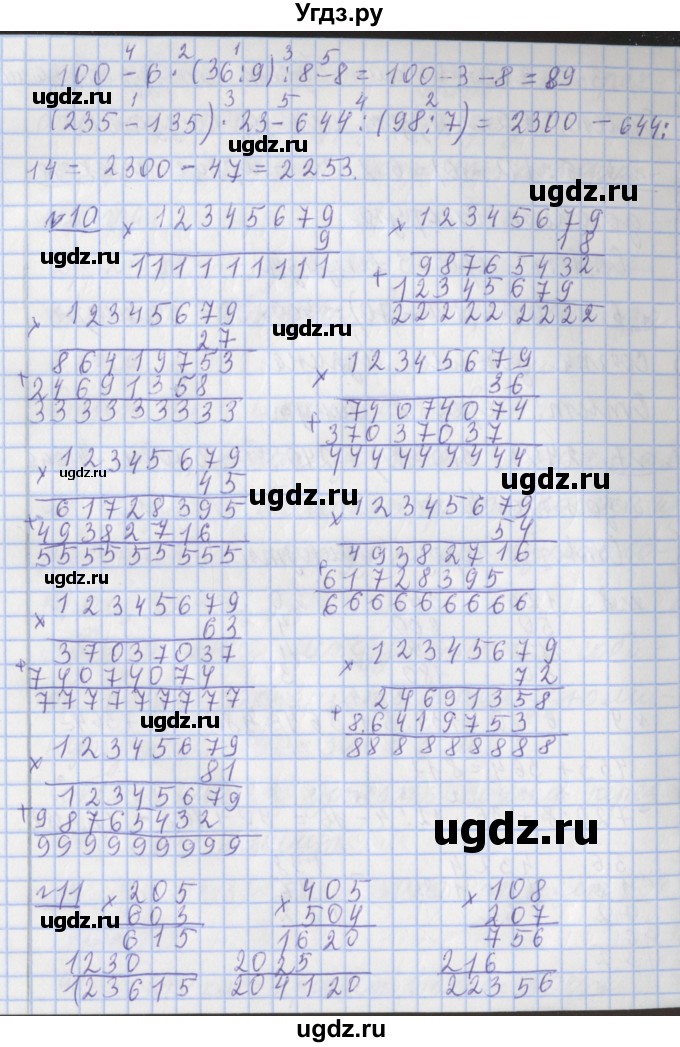 Угдз.ру
4 2 1 3 5
100 - 6 · (36:9) : 8 - 8 = 100 - 3 - 8 = 89
1 3 5 4 2
(235 - 135) · 23 - 644 : (98:7) = 2300 - 644:
14 = 2300 - 47 = 2253.
ugdz.ru
№10
ugdz.ru
× 12345679
9
111111111
× 12345679
18
+ 98765432
12345679
222222222
ugdz.ru
× 12345679
27
+ 86419753
24691358
333333333
ugdz.ru
× 12345679
36
+ 74074074
37037037
444444444
ugdz.ru
× 12345679
45
+ 61728395
49382716
555555555
ugdz.ru
× 12345679
54
+ 49382716
61728395
666666666
ugdz.ru
× 12345679
63
+ 37037037
74074074
777777777
ugdz.ru
× 12345679
72
+ 24691358
86419753
888888888
× 12345679
81
+ 12345679
98765432
999999999
ugdz.ru
№11
ugdz.ru
× 205
603
615
1230
123615
× 405
504
1620
2025
204120
× 108
207
756
216
22356
ugdz.ru
ugdz.ru